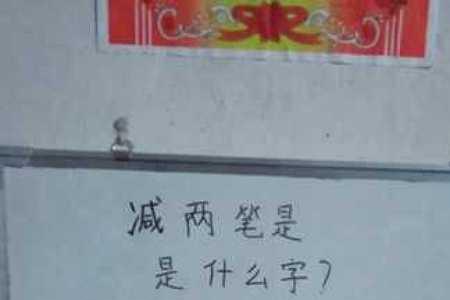 减两笔是
是什么字?